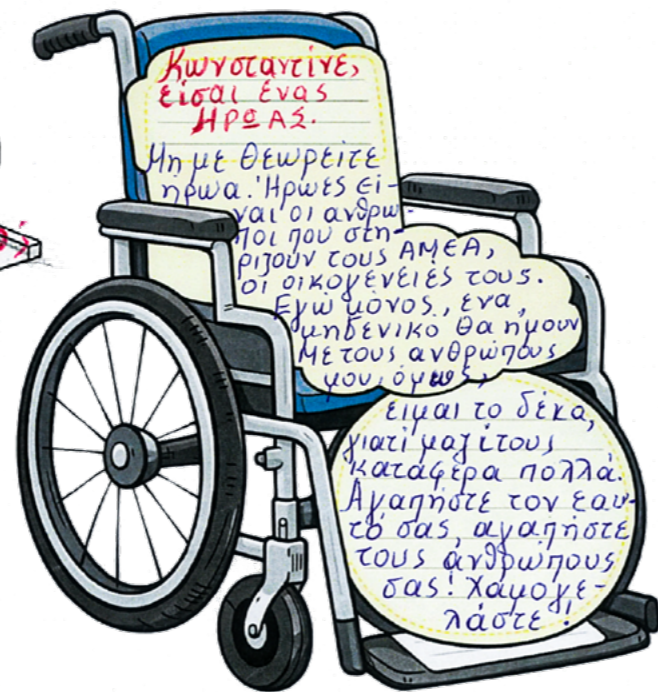 Κωνσταντίνε,
είσαι ένας
ΗΡΩΑΣ.
Μη με θεωρείτε
ήρωα. Ήρωες εί-
ναι οι ανθρω-
ποι που στη-
ρίζουν τους ΑΜΕΑ,
οι οικογένειές τους.
Εγώ μόνος, ένα
μηδενικό θα ήμουν
Με τους ανθρώπους
μου, όμως,
είμαι το δέκα,
γιατί μαζί τους
κατάφερα πολλά.
Αγαπήστε τον εαυ-
τό σας, αγαπήστε
τους ανθρώπους
σας! Χαμογε-
λάστε!